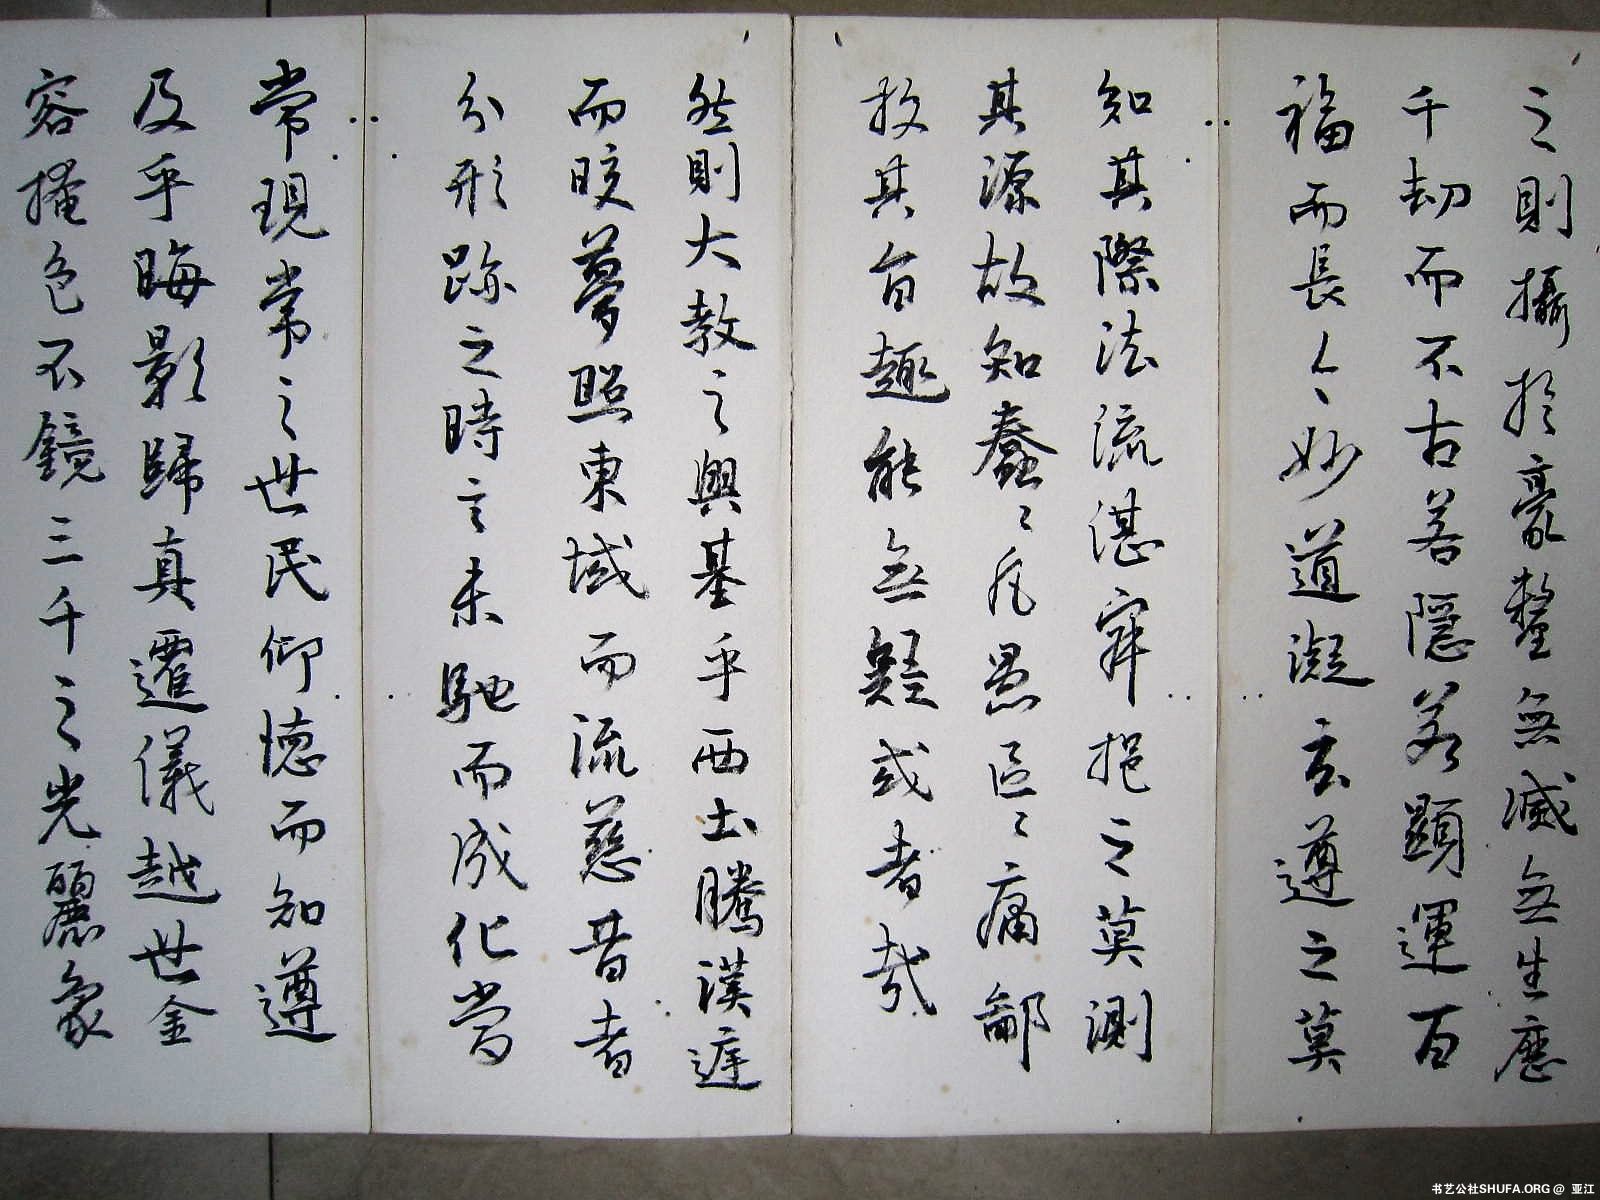 之則攝於豪釐無滅無生歷
千劫而不古若隱若顯運百
福而長今妙道凝玄遵之莫
知其際法流湛寂挹之莫測
其源故知蠢〻凡愚區〻庸鄙
投其旨趣能無疑或者哉
然則大教之興基乎西土騰漢庭
而皎夢照東域而流慈昔者
分形跡之時言未馳而成化當
常現常之世民仰德而知遵
及乎晦影歸真遷儀越世金
容掩色不鏡三千之光麗象
书艺公社SHUFA.ORG @ 亚江